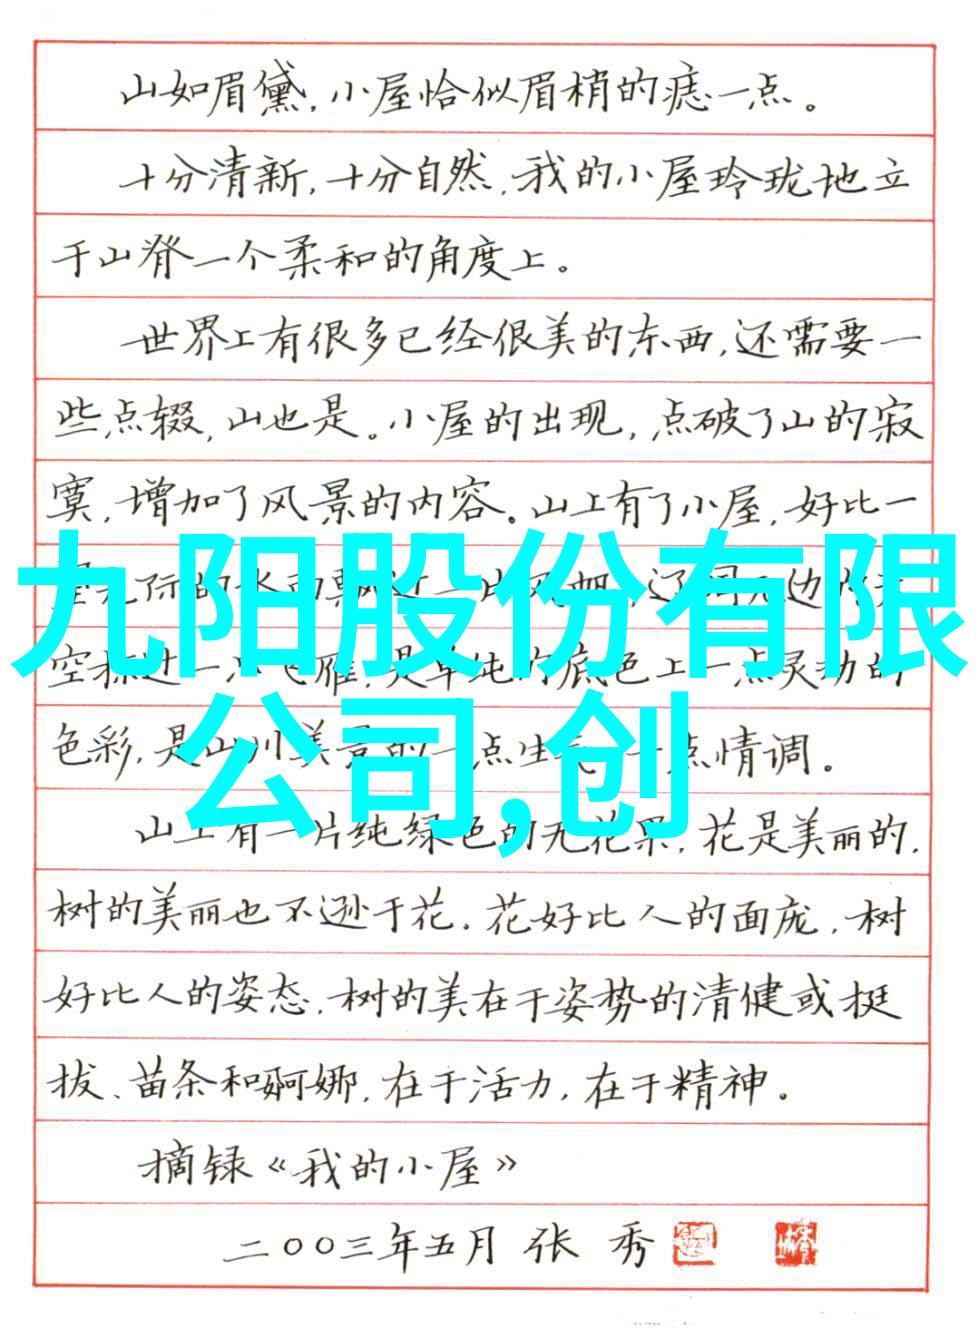 山如眉黛，小屋恰似眉梢的痣一点。
十分清新，十分自然，我的小屋玲珑地立
于山脊一个柔和的角度上。
世界上有很多已经很美的东西，还需要一
些点缀，山也是。小屋的出现，点破了山的寂
寞，增加了风景的内容。山上有了小屋，好比一
九阳股份有限
公司,创
色彩，是山川美景的一点生气一点情调。
山上有一片纯绿色的无花果，花是美丽的，
树的美丽也不逊于花。花好比人的面庞，树
好比人的姿态。树的美在于姿势的清健或挺
拔、苗条和婀娜，在于活力，在于精神。
摘录《我的小屋》
二〇〇三年五月 张 秀